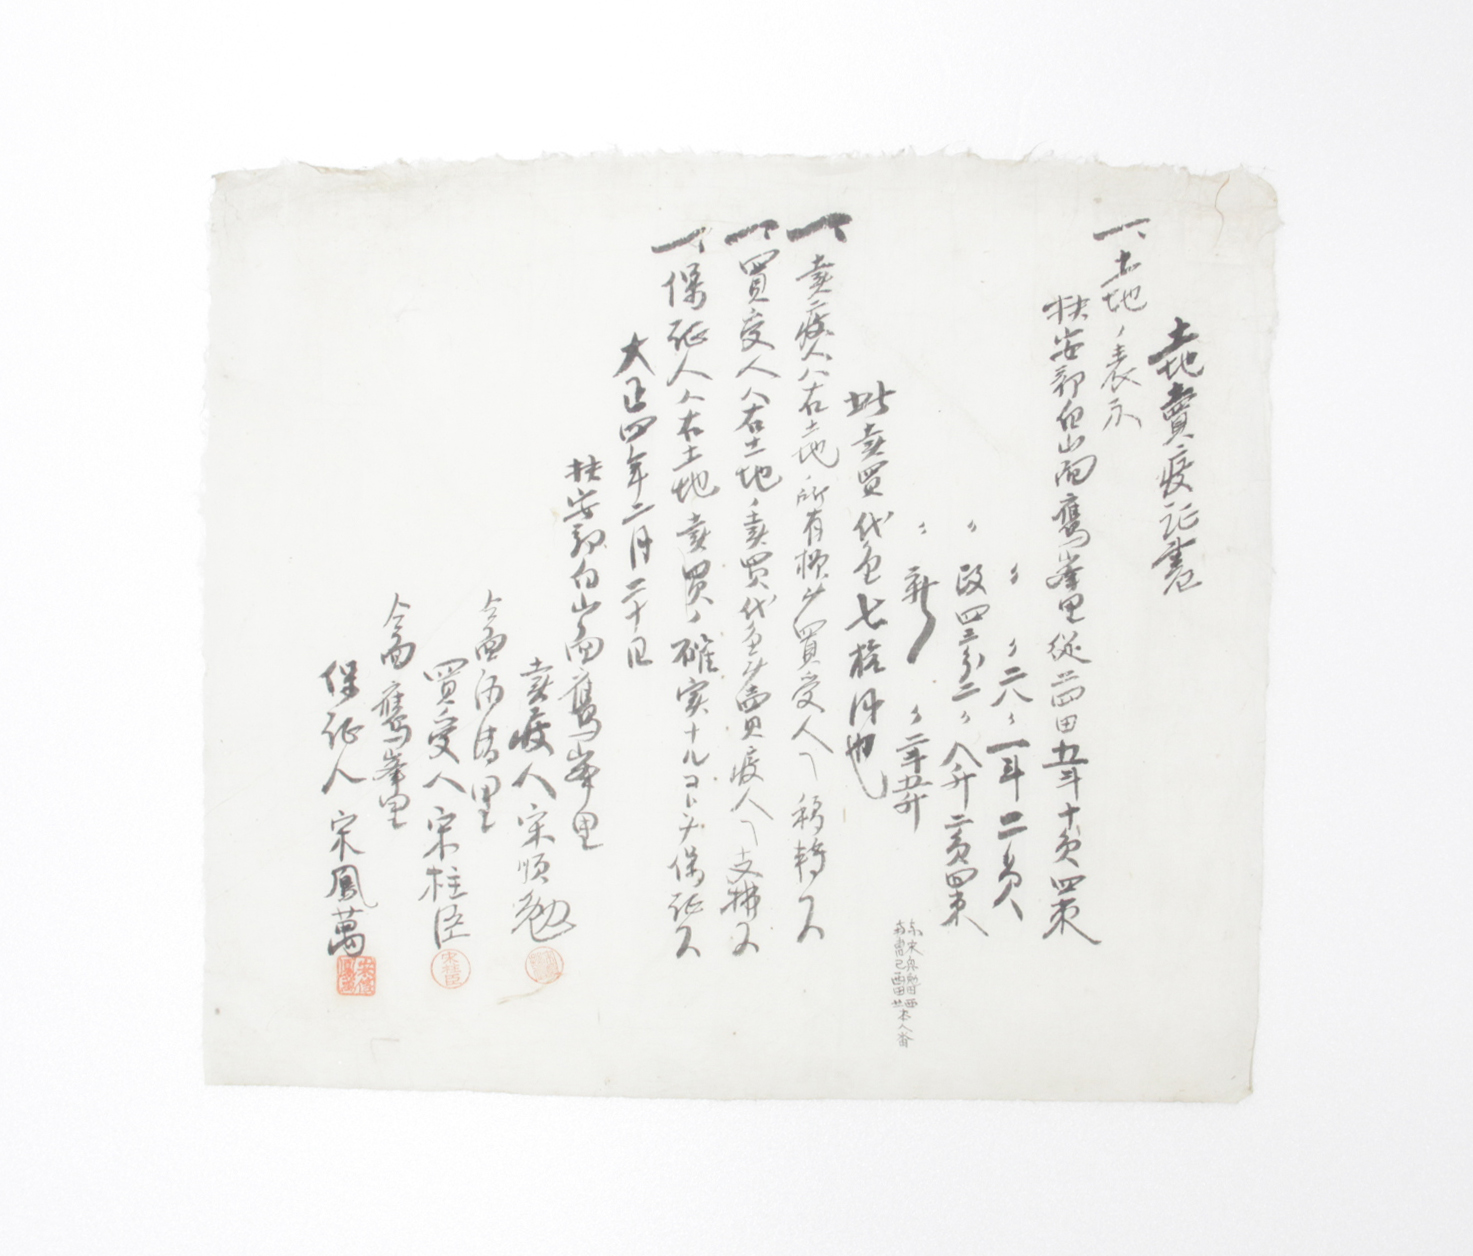 土地賣渡証書
一、土地ノ表示
扶安郡白山面鷹峯里従前田五斗十負四束
〃 〃二八〃一斗二負
〃 改四三分二〃八升二負四束
〃 新 〃二斗五升
此売買代金七拾円也
一、売渡人ハ右土地ノ所有権ヲ買受人ヘ移転ス
一、買受人ハ右土地ノ売買代金ヲ売渡人ヘ支拂ス
一、保証人ハ右土地売買ノ確実ナルコトヲ保証ス
大正四年二月二十日
扶安郡白山面鷹峯里
売渡人 宋順勉
仝面 里
買受人 宋柱臣
仝面鷹峯里
保証人 宋鳳萬
宋柱臣